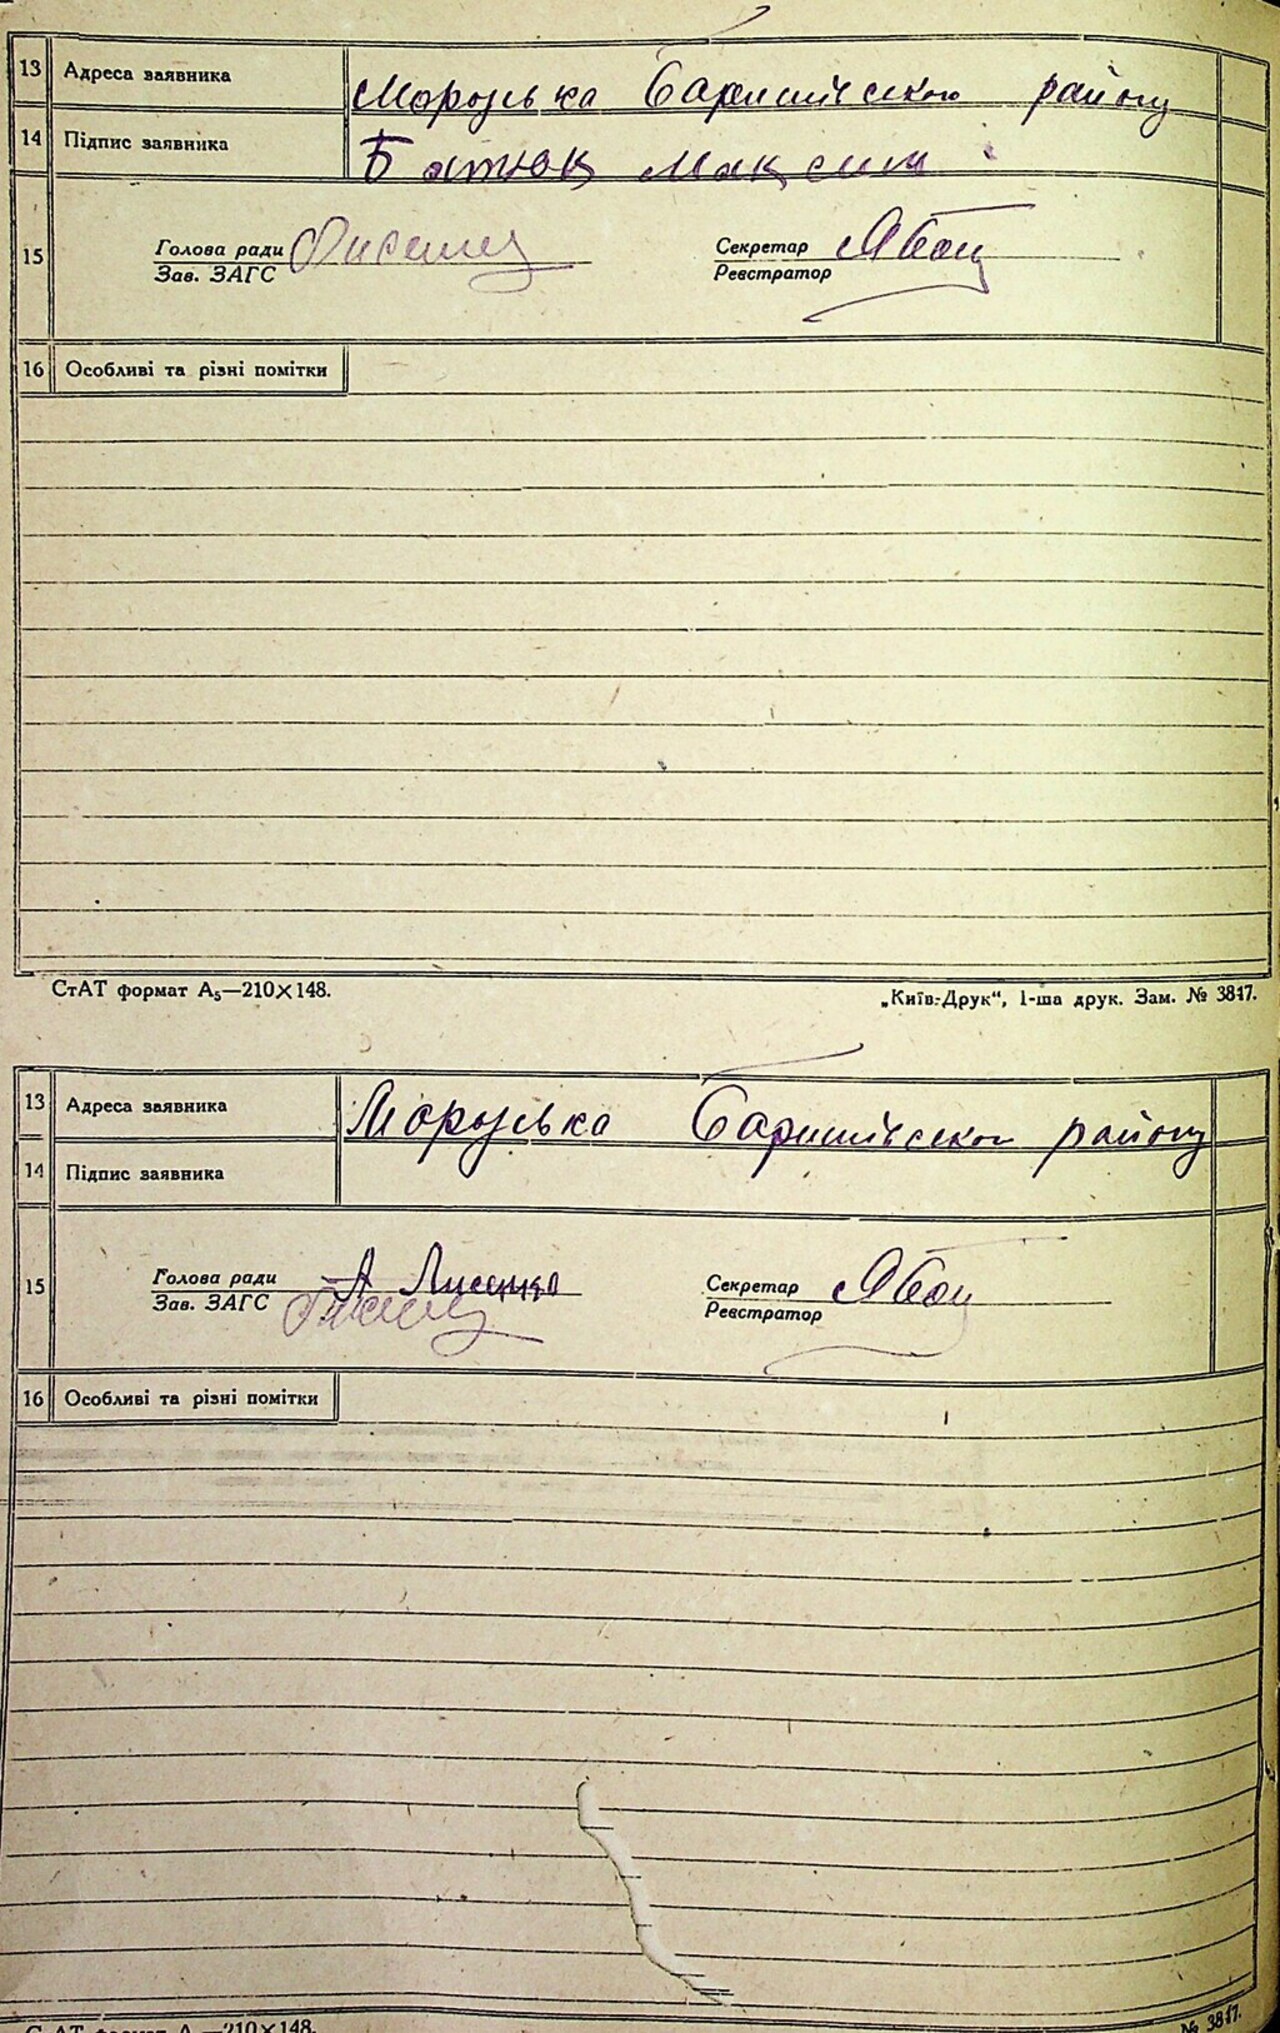 13 Адреса заявника Морозька Баришівського району
14 Підпис заявника Батюк Максим
15 Голова ради Секретар
Зав. ЗАГС Реєстратор
16 Особливі та різні помітки
СтАТ формат А₅—210×148. „Київ-Друк“, 1-ша друк. Зам. № 3847.
13 Адреса заявника Морозька Баришівського району
14 Підпис заявника
15 Голова ради А Лисенко Секретар
Зав. ЗАГС Реєстратор
16 Особливі та різні помітки
СтАТ формат А₅—210×148. № 3847.